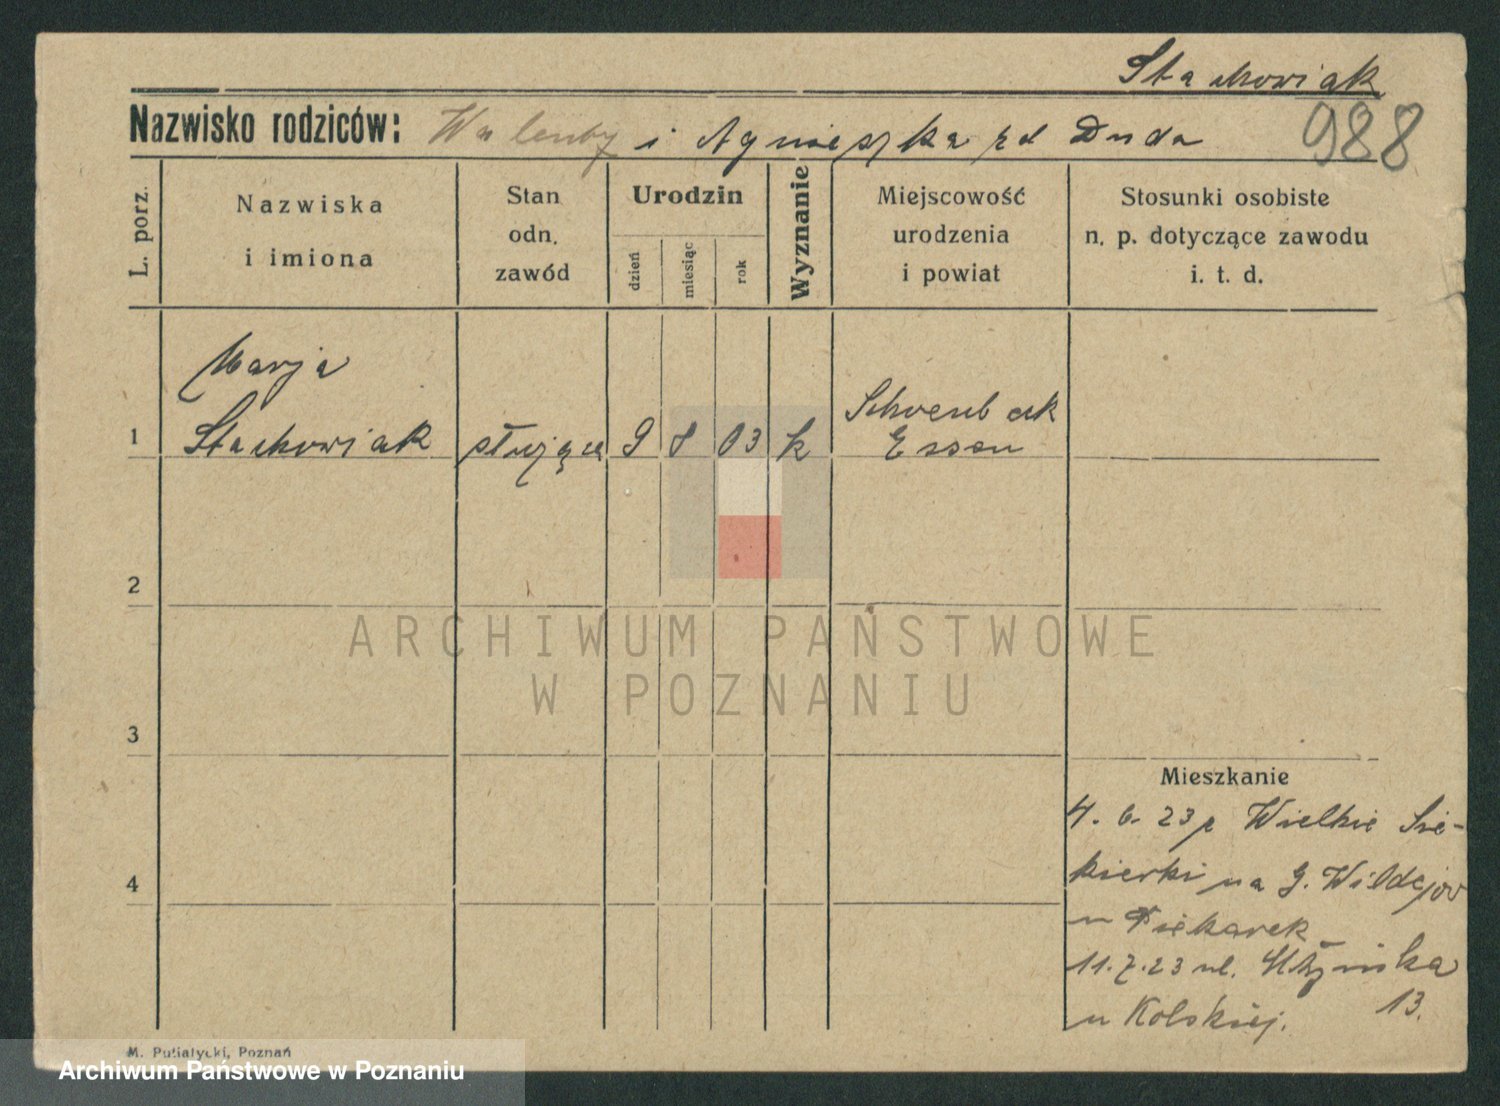 Stachowiak
Nazwisko rodziców: Walenty i Agnieszka zd Duda
988
L. porz.
Nazwiska
i imiona
Stan
odn.
zawód
Urodzin
dzień
miesiąc
rok
Wyznanie
Miejscowość
urodzenia
i powiat
Stosunki osobiste
n. p. dotyczące zawodu
i. t. d.
Marja
1 Stachowiak służąca 9 8 03 k
Essen
2
3
4
ARCHIWUM PAŃSTWOWE
W POZNANIU
Mieszkanie
4. 6. 23 z Wielkie Sie-
kierki na G. Wilda
u Piekarek
11.7.23 ul.
13.
u Kolskiej.
M. Putiatycki, Poznań
Archiwum Państwowe w Poznaniu